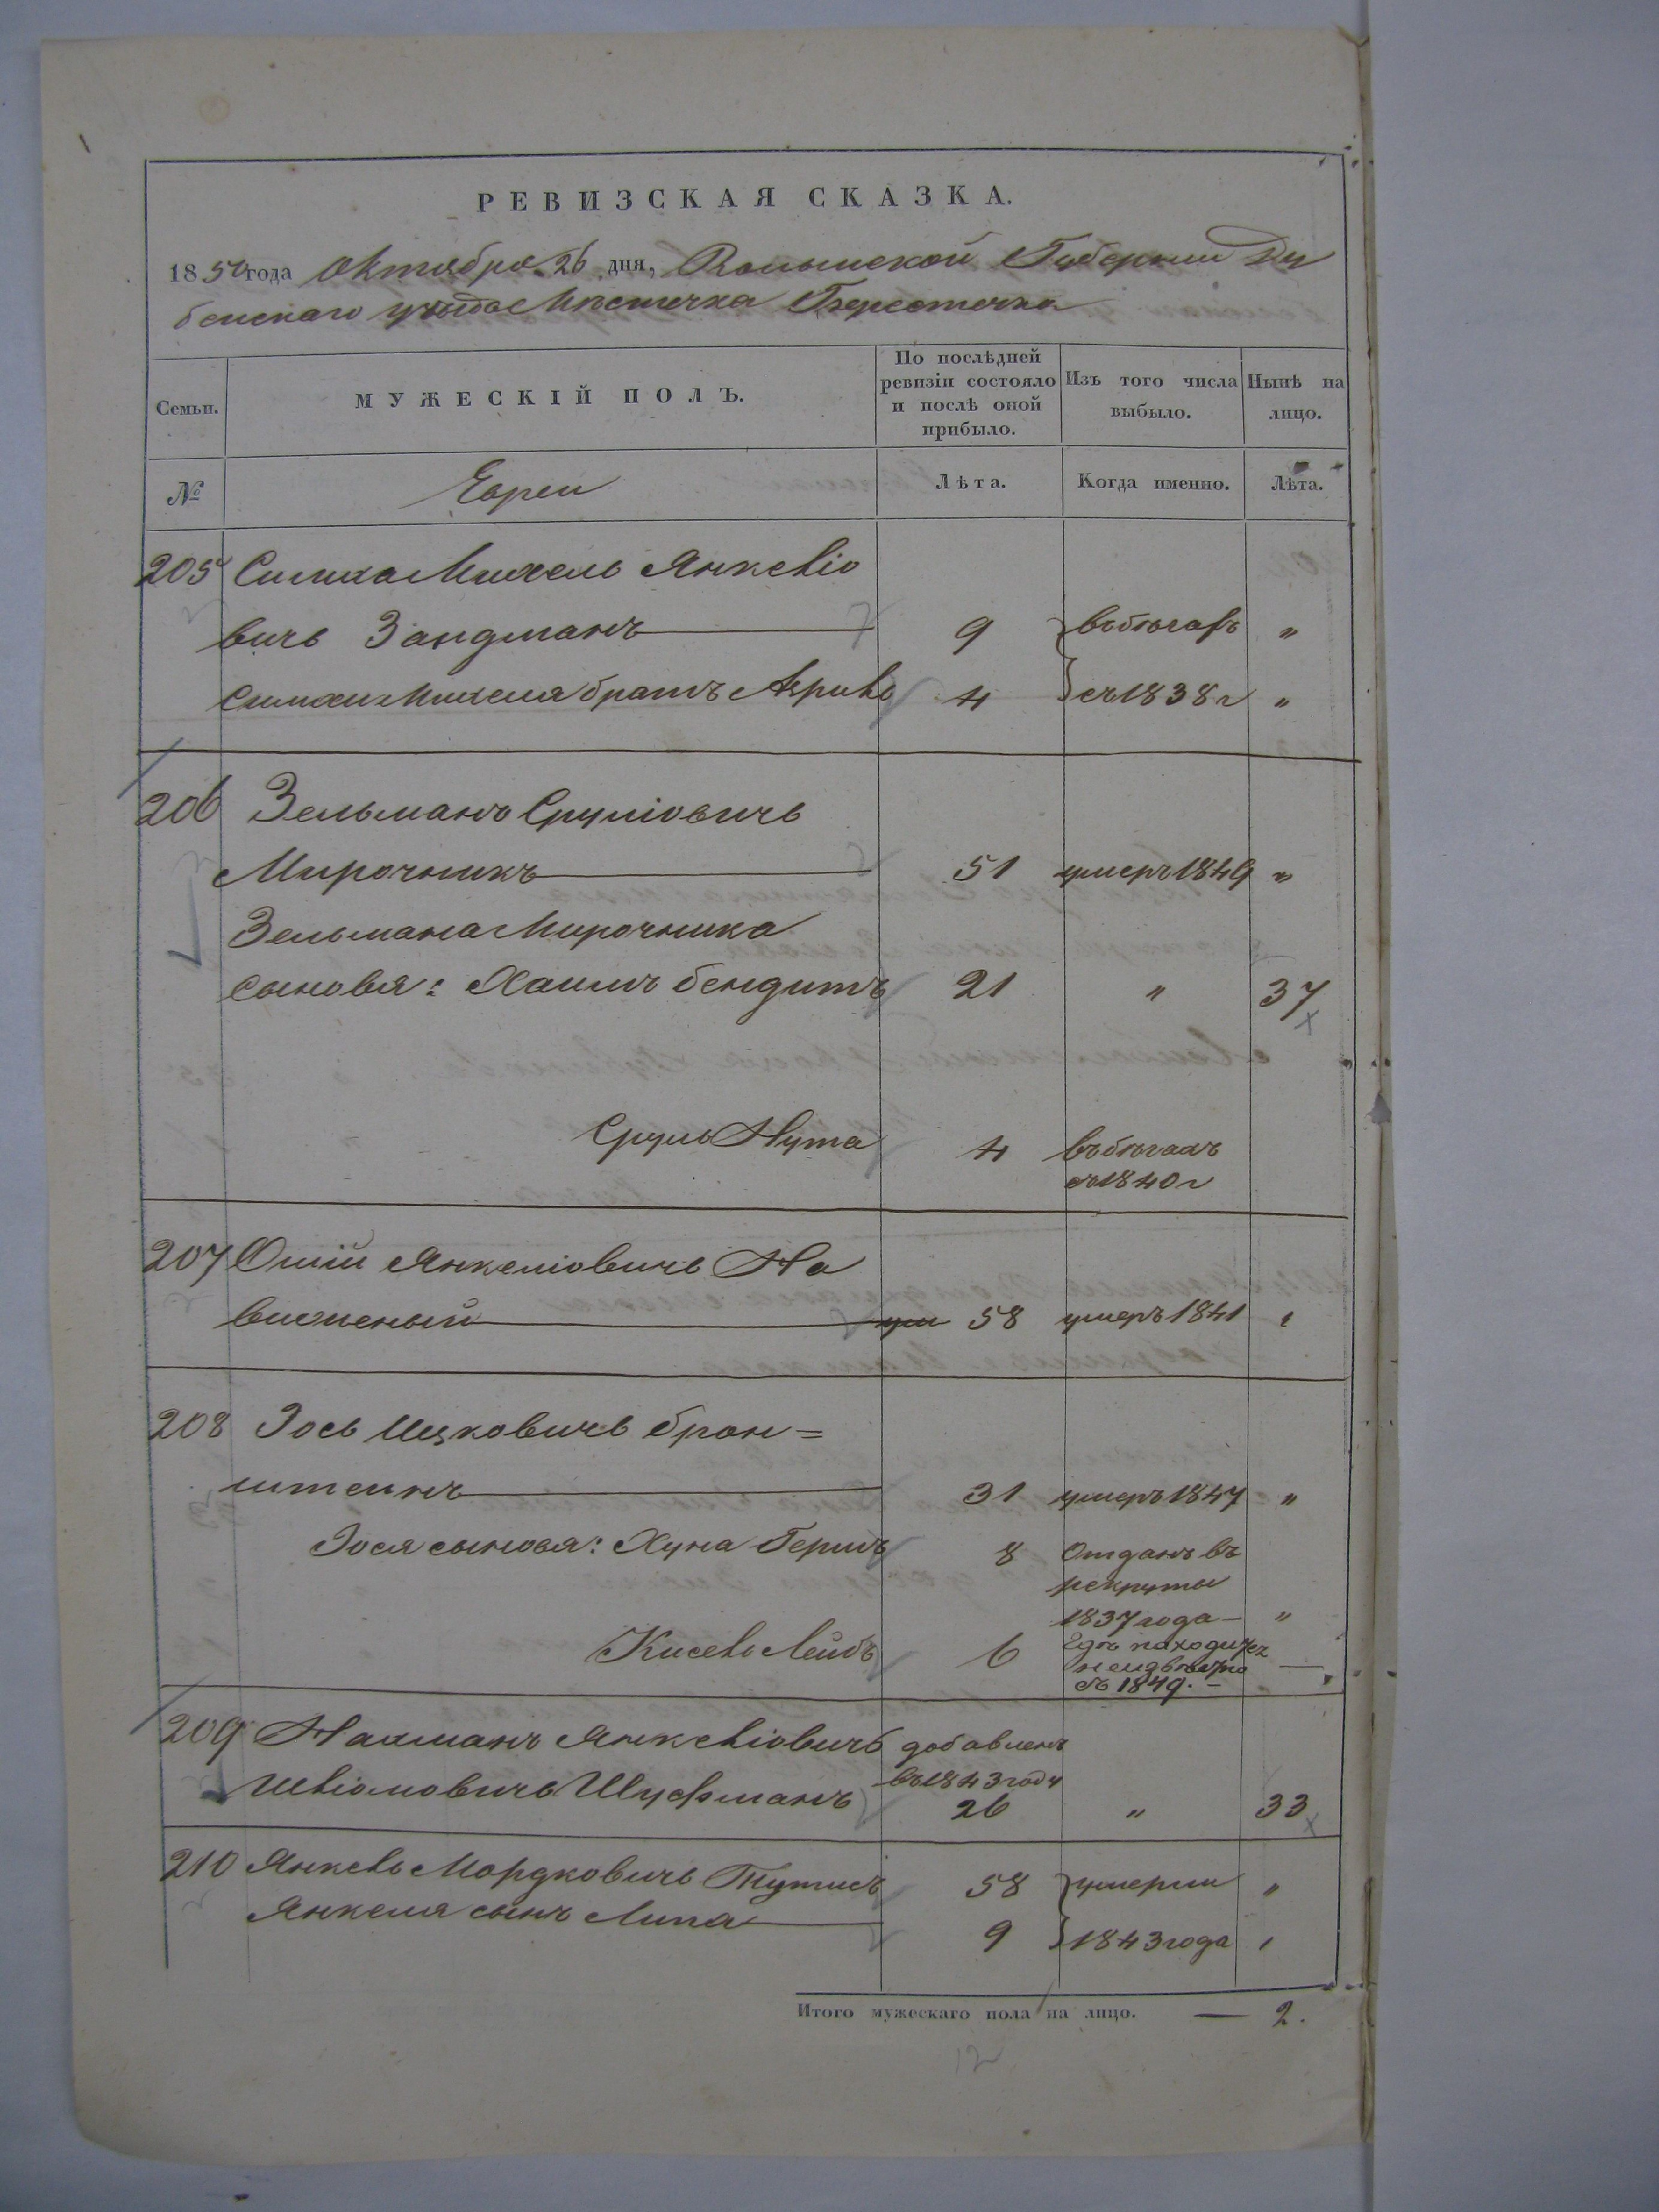 РЕВИЗСКАЯ СКАЗКА.
1850 года Октября 26 дня, Волынской Губернии Ду
бенскаго уѣзда Мѣстечка Берестечка
Семьи.
МУЖЕСКІЙ ПОЛЪ.
По послѣдней ревизіи состояло и послѣ оной прибыло.
Изъ того числа выбыло.
Нынѣ на лицо.
№
Евреи
Лѣта.
Когда именно.
Лѣта.
205 Симха Михель Янкеліо
вичь Зандманъ 9 въ бѣгахъ "
Симхи Михеля братъ 4 съ 1838 г "
206 Зельманъ Сруліовичь
Мирочникъ 51 умеръ 1849 "
Зельмана Мирочника
сыновья: Хаимъ бендитъ 21 " 37
Сруль Нута 4 въ бѣгахъ
съ 1840 г
207 Ошій Янкеліовичь На
58 умеръ 1841 "
208 Зось Ицковичь брон=
штеинъ 31 умеръ 1847 "
Зося сыновья: Хуна Гершъ 8 Отданъ въ
рекруты
1837 года — "
Кисель Лейбъ 6 Гдѣ находится
неизвѣстно —
съ 1849. —
209 Нахманъ Янкеліовичь добавленъ
въ 1843 году
Шліомовичь Шуфманъ 26 " 33
210 Янкель Мордковичь 58 умерли "
Янкеля сынъ Липа 9 1843 года "
Итого мужескаго пола на лицо. — 2.
12